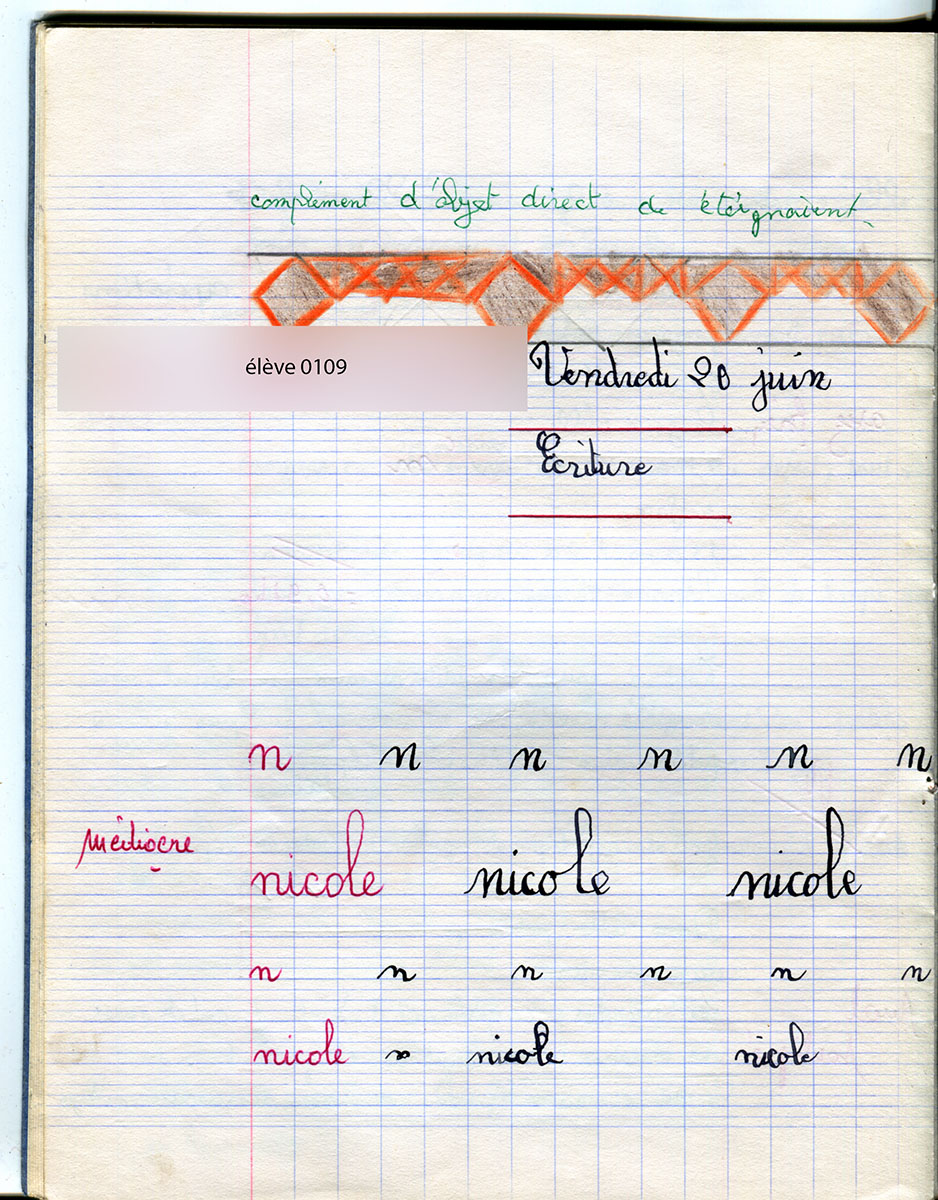 complément d'objet direct de éteignaient
élève 0109
Vendredi 20 juin
Ecriture
n n n n n n
médiocre
nicole nicole nicole
n n n n n n
nicole n nicole nicole